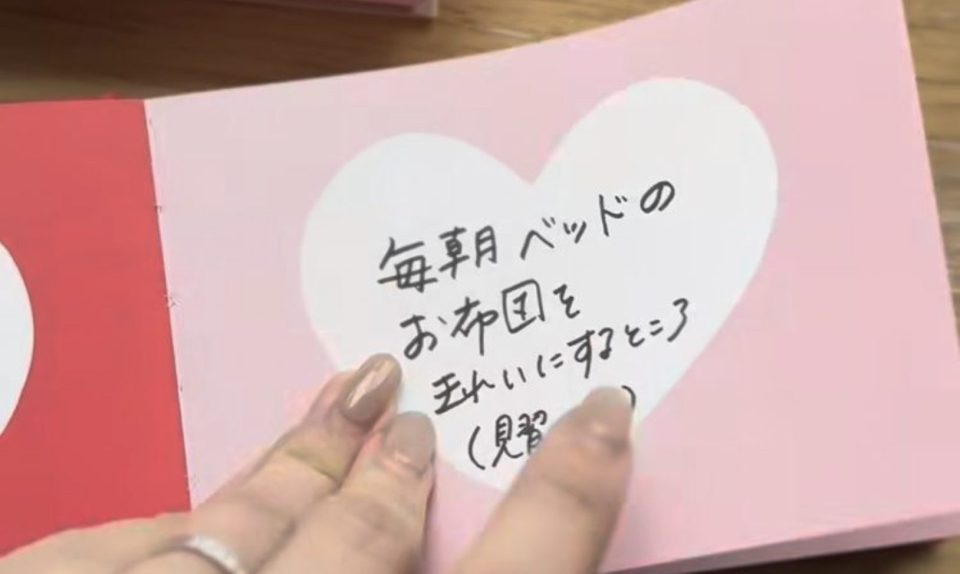 毎朝ベッドの
お布団を
きれいにするところ
(見習